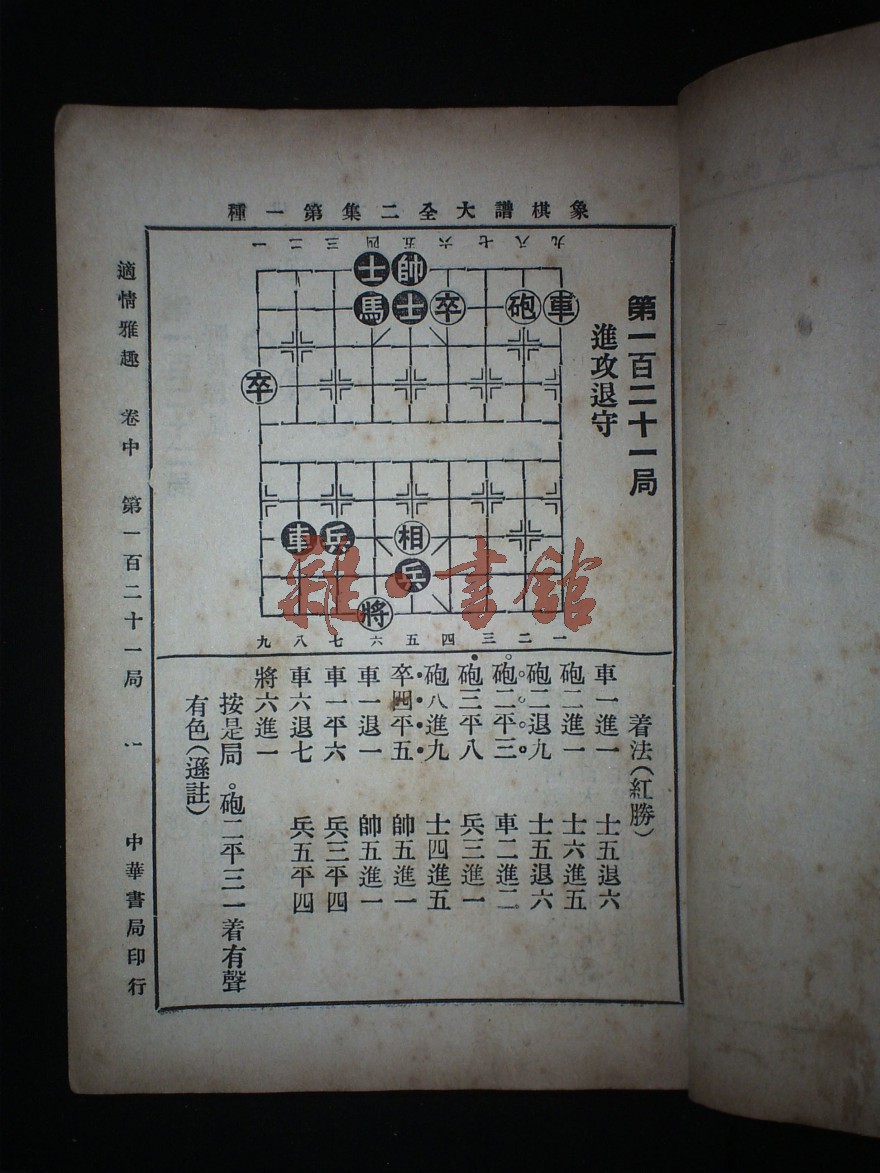 象棋譜大全二集第一種
第一百二十一局
進攻退守
九 八 七 六 五 四 三 二 一
士 帥
馬 士 卒 砲 車
卒
車 兵 相
兵
將
九 八 七 六 五 四 三 二 一
着法(紅勝)
車一進一 士五退六
砲二進一 士六進五
砲二退九 士五退六
砲二平三 車二進二
砲三平八 兵三進一
砲八進九 士四進五
卒四平五 帥五進一
車一退一 帥五進一
車一平六 兵三平四
車六退七 兵五平四
將六進一
按是局。砲二平三一着有聲
有色(遜註)
適情雅趣 卷中 第一百二十一局 一 中華書局印行
雜·書館